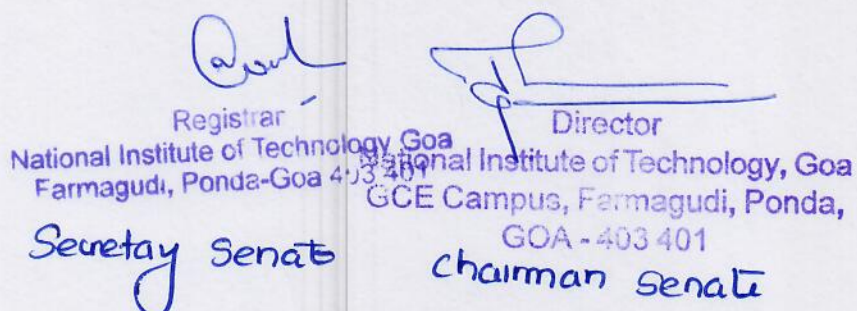 Registrar
National Institute of Technology, Goa
Farmagudi, Ponda-Goa 403 401
Secretay Senate
Director
National Institute of Technology, Goa
GCE Campus, Farmagudi, Ponda,
GOA - 403 401
Chairman Senate